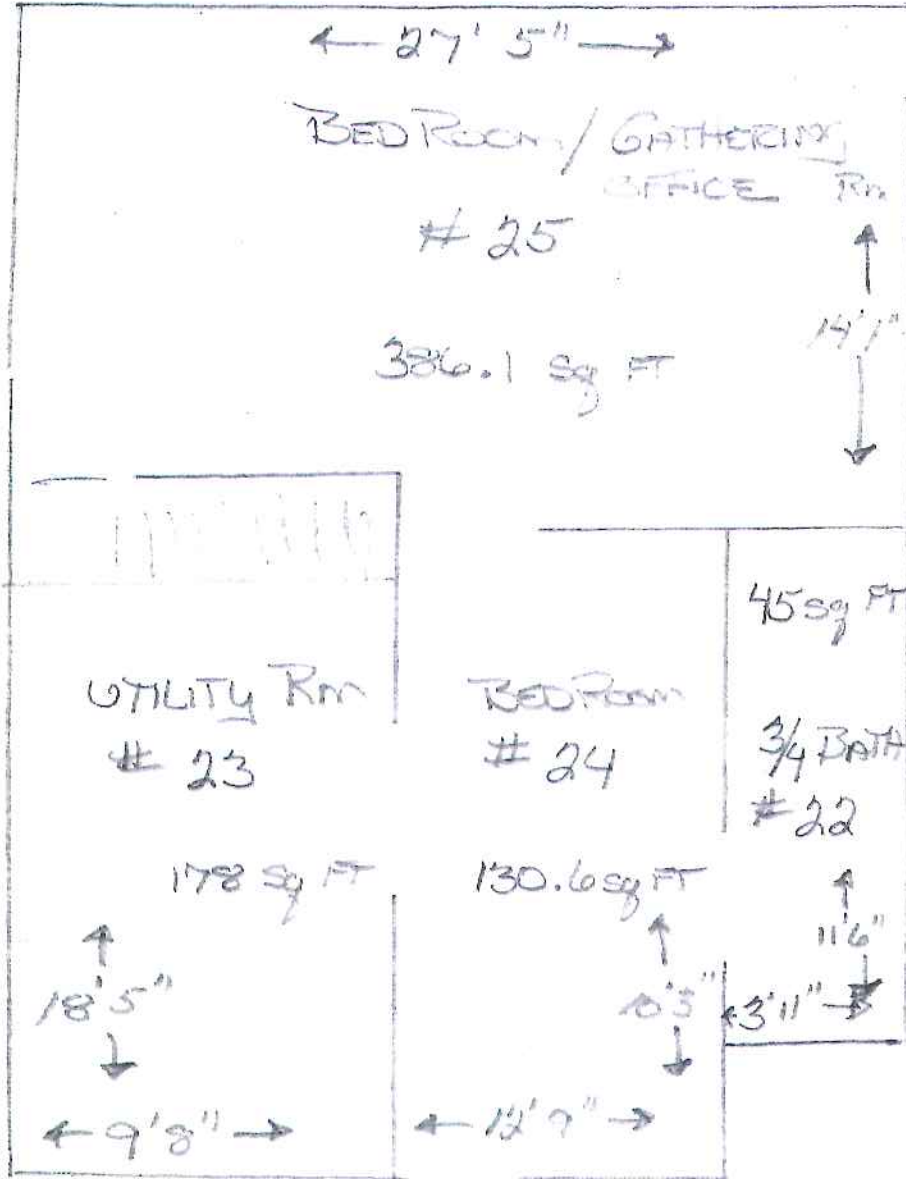 27' 5"
BEDROOM / GATHERING
OFFICE Rm
# 25
14'1"
386.1 Sq FT
45 sq FT
UTILITY Rm
# 23
BEDROOM
# 24
3/4 BATH
# 22
178 Sq FT
130.6 sq FT
11'6"
18'5"
10'3"
3'11"
9'8"
12'9"